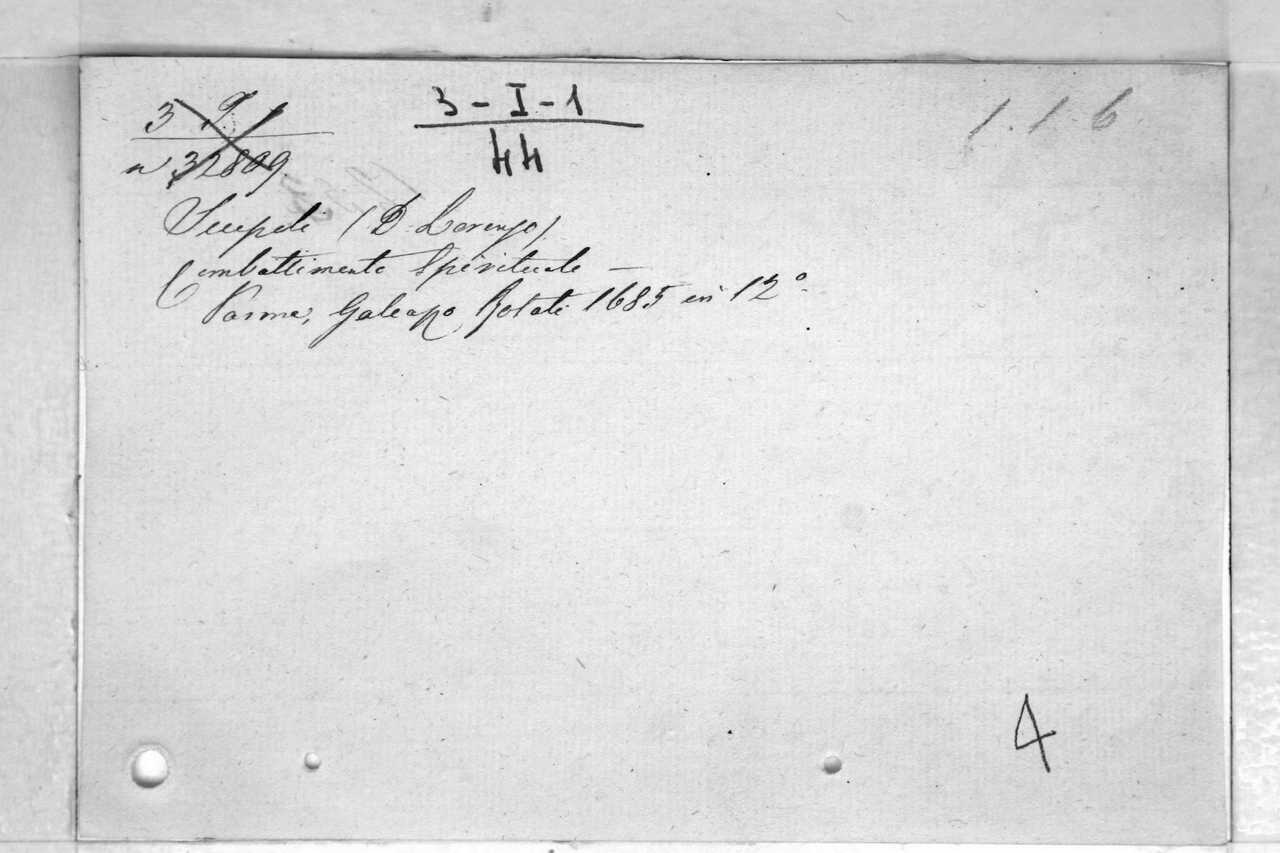 3 - I - 1
44
1.1.6
n 32809.
Scupoli (D. Lorenzo)
Combattimento Spirituale —
Parma, Galeazzo Rosati 1685 in 12°.
4